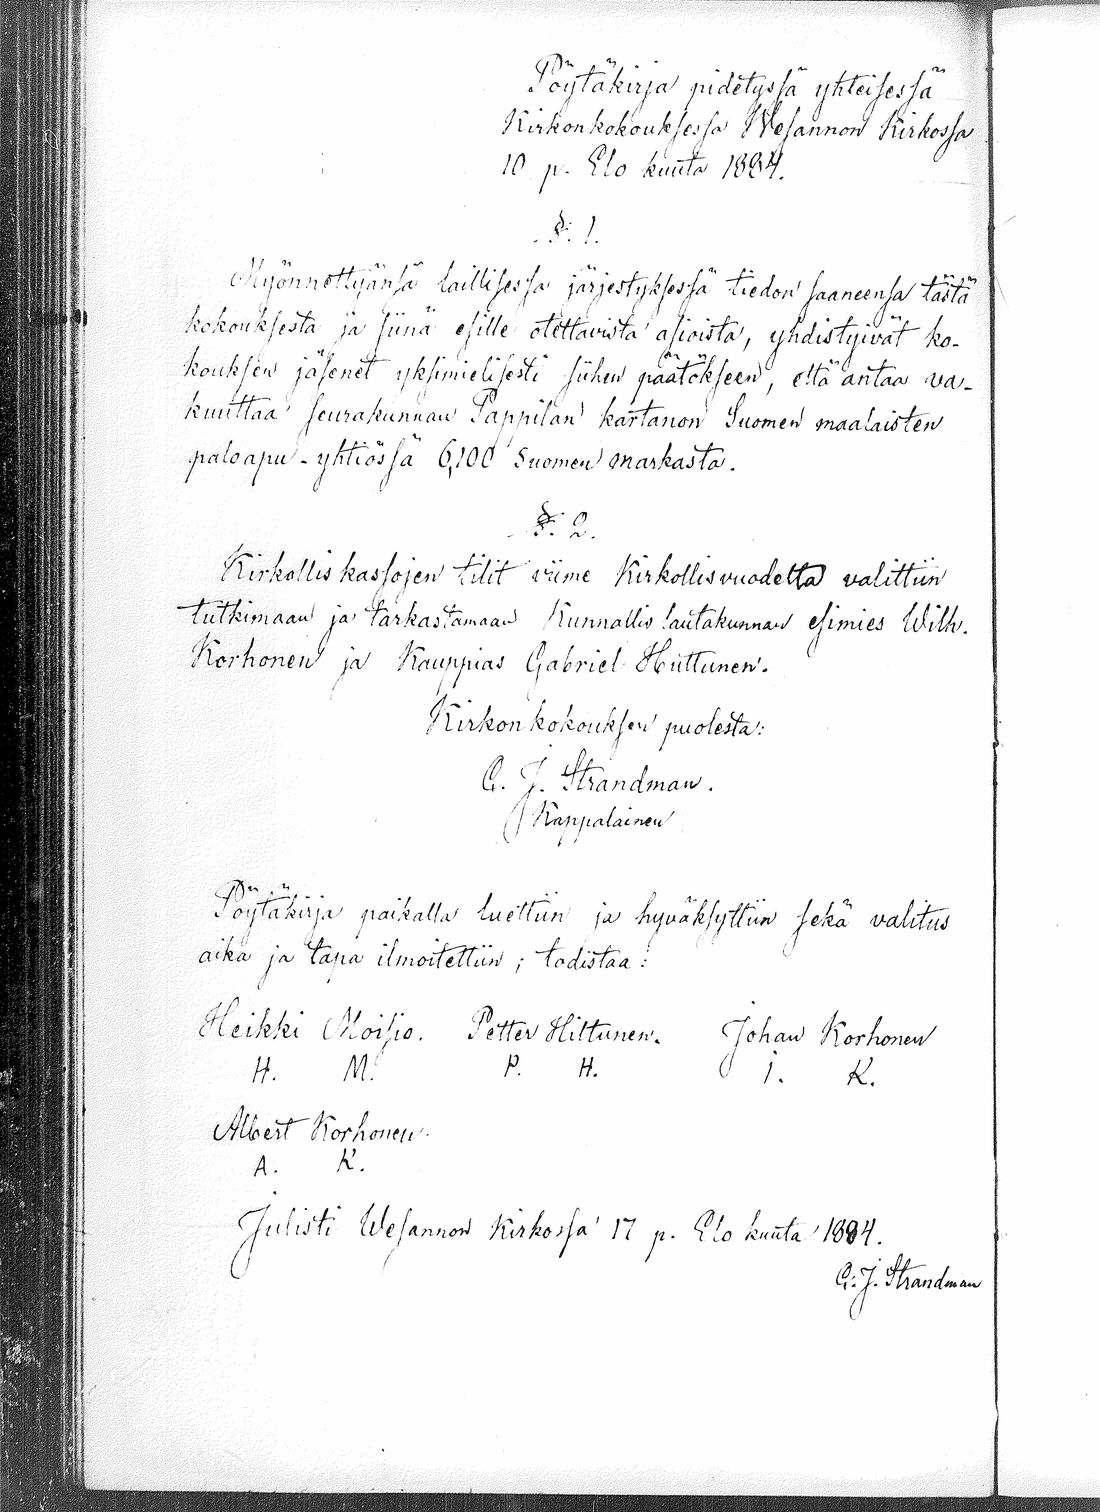 Pöytäkirja pidetyssä yhteisessä
Kirkonkokouksessa Wesannon Kirkossa
10 p. Elo kuuta 1884.
§. 1.
Myönnettyänsä laillisessa järjestyksessä tiedon saaneensa tästä
kokouksesta ja siinä esille otettavista asioista, yhdistyivät ko-
kouksen jäsenet yksimielisesti siihen päätökseen, että antaa va-
kuuttaa seurakunnan Pappilan kartanon Suomen maalaisten
paloapu-yhtiössä 6,100 Suomen markasta.
§. 2.
Kirkolliskassojen tilit viime Kirkollisvuodelta valittiin
tutkimaan ja tarkastamaan Kunnallis lautakunnan esimies Wilh.
Korhonen ja Kauppias Gabriel Huttunen.
Kirkonkokouksen puolesta:
G. J. Strandman.
Kappalainen
Pöytäkirja paikalla luettiin ja hyväksyttiin sekä valitus
aika ja tapa ilmoitettiin; todistaa:
Heikki Moisio. Petter Hiltunen. Johan Korhonen
H. M. P. H. J. K.
Albert Korhonen.
A. K.
Julisti Wesannon Kirkossa 17 p. Elo kuuta 1884.
G. J. Strandman